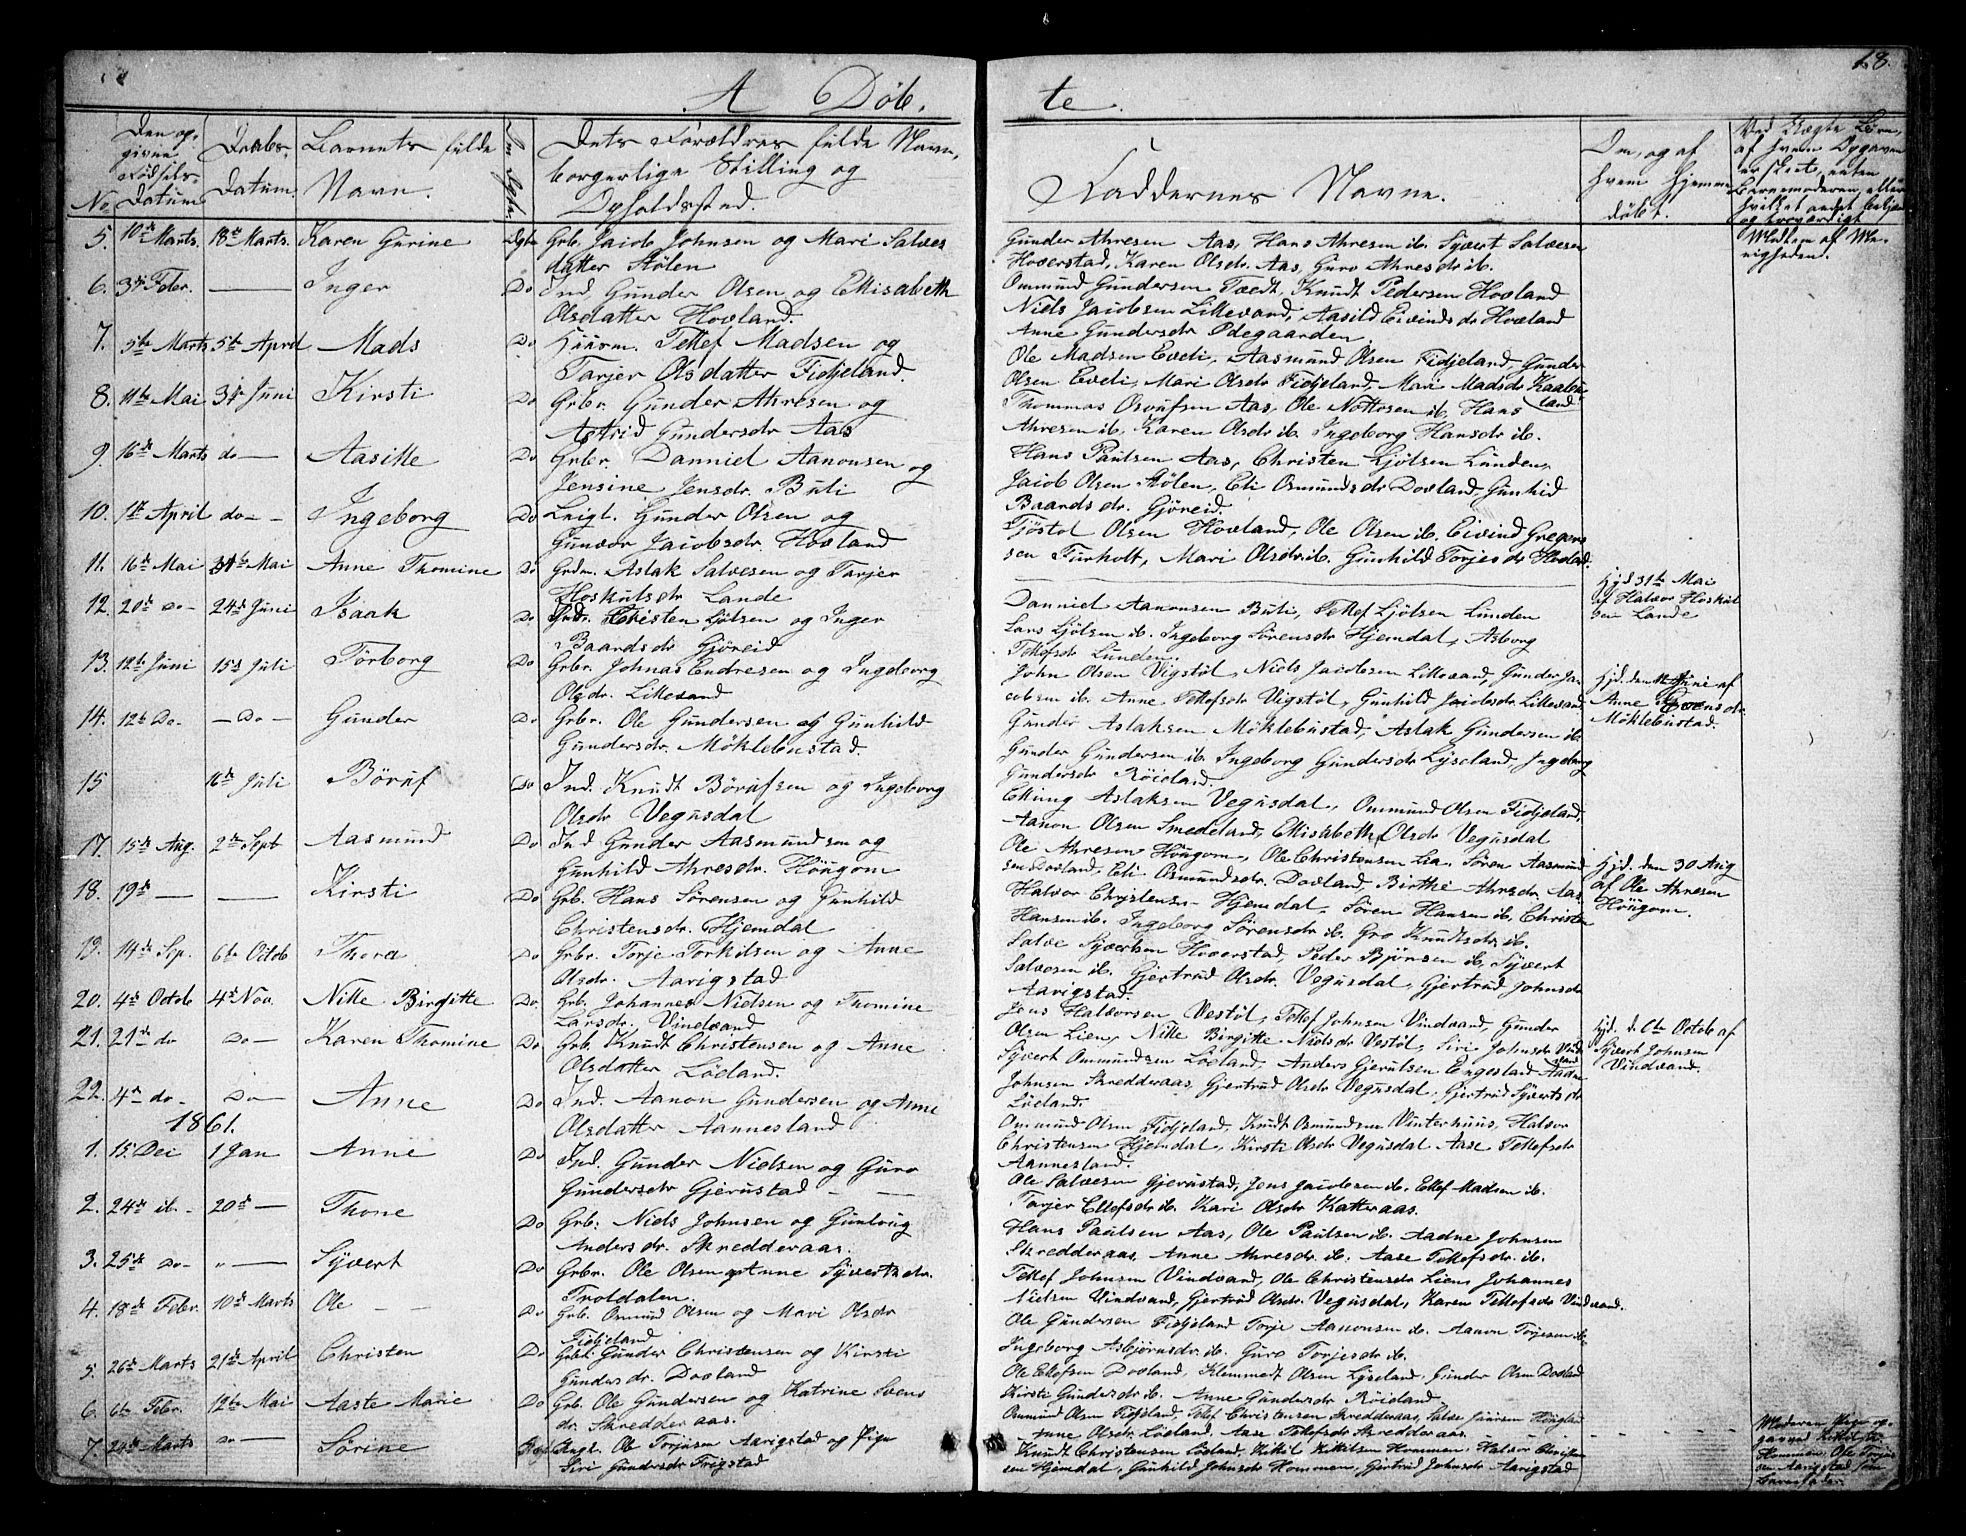 28.
A Døb.
te.
No
Den op-
givne
Fødsels-
Datum
Daabs.
Datum.
Barnets fulde
Navn.
Om Ægte.
Dets Forældres fulde Navn,
borgerlige Stilling og
Opholdssted.
Faddernes Navne.
Om, og af
hvem hjemme
døbt.
Ved Uægte Børn,
af hvem Opgaven
er skeet, enten
Barnemoderen, eller
hvilket andet
og troværdigt
Medlem af Me-
nigheden.
5. 10de Marts. 18de Marts. Karen Gurine Ægte Grb. Jacob Johnsen og Mari Salves
datter Stølen
Gunder Ahresen Aas, Hans Ahresen ib. Syvert Salvesen
Hoverstad, Karen Olsdr. Aas, Guro Ahresdr ib.
6. 3die Febr. — Inger Do Ind Gunder Olsen og Ellisabeth
Olsdatter Hovland.
Ommund Gundersen Tvedt, Knudt Pedersen Hovland
Niels Jacobsen Lillevand, Aasild Eivindsdr Hovland
Anne Gundersdr Ødegaarden.
7. 5te Marts 5te April Mads Do Huusm. Tellef Madsen og
Tarjer Olsdatter Fidjeland.
Ole Madsen Eveli, Aasmund Olsen Fidjeland, Gunder
Olsen Eveli, Mari Olsdr Fidjeland, Mari Madsdr Kaale-
land
8. 11te Mai 3die Juni Kirsti Do Grbr. Gunder Ahresen og
Astrid Gundersdr Aas
Thommas Osvulfsen Aas, Ole Nottosen ib, Hans
Ahresen ib, Karen Olsdr ib. Ingeborg Hansdr ib.
9. 16de Marts do — Aasille Do Grbr. Danniel Aanonsen og
Jensine Jensdr. Buli
Hans Paulsen Aas, Christen Ljølsen Lunden,
Jacob Olsen Stølen, Eli Osmundsdr Dovland, Gunhild
Baardsdr. Gjøreid.
10. 1st April do — Ingeborg Do Leigl. Gunder Olsen og
Gunvor Jacobsdr. Hovland
Tjøstol Olsen Hovland, Ole Olsen ib. Eivind Gregers
sen Furholt, Mari Olsdr ib. Gunhild Torjesdr Hovland
11. 16de Mai 31te Mai Anne Thomine Do Grdm. Aslak Salvesen og Tarjer
Hoskulsdr Lande
Hjd 31te Mai
af Halvor Hoskul
sen Lande
12. 20de Do — 24de Juni Isaak Do Grbr. Christen Ljølsen og Inger
Baardsdr Gjøreid
Danniel Aanonsen Buli, Tellef Ljølsen Lunden
Lars Ljølsen ib. Ingeborg Sørensdr Hjemdal, Asborg
Tellefsdr Lunden.
13. 12te Juni 15de Juli Torborg Do Grbr. Johnas Endresen og Ingeborg
Olsdr. Lillevand
John Olsen Vigstøl, Niels Jacobsen Lillevand, Gunder Ja-
cobsen ib. Anne Tellefsdr Vigstøl, Gunhild Jacobsdr Lillevand
14. 12te Do. — Do — Gunder Do Grbr. Ole Gundersen og Gunhild
Gundersdr. Møklebustad.
Gunder Aslaksen Møklebustad, Aslak Gundersen ib.
Gunder Gundersen ib. Ingeborg Gundersdr Lyseland, Ingeborg
Gundersdr Røiseland
Hjd. den Juni af
Anne Evensdr.
Møklebustad.
15 16de Juli Børuf Do Ind. Knudt Børufsen og Ingeborg
Olsdr Vegusdal
Elling Aslaksen Vegusdal, Ommund Olsen Fidjeland,
Aanon Olsen Smedeland, Ellisabeth Olsdr Vegusdal
17. 15de Aug. 2den Sept Aasmund Do Ind Gunder Aasmundsen og
Gunhild Ahresdr. Höugom
Ole Ahresen Höugom, Ole Christensen Lia, Søren Aasmund
sen Dovland, Eli Osmundsdr. Dovland, Birthe Ahresdr Aas
Hjd. den 30 Aug
af Ole Ahresen
Höugom.
18. 19de — — Kirsti Do Grb. Hans Sørensen og Gunhild
Christensdr. Hjemdal
Halvor Chrystensen Hjemdal, Søren Hansen ib. Christen
Hansen ib. Ingeborg Sørensdr ib. Gro Knudtsdr ib.
19. 14de Sep. 6te Octob Thora Do Grbr. Torje Torkilsen og Anne
Olsdr. Aarigstad
Salve Syvertsen Hoverstad, Peder Bjørnsen ib, Syvert
Salvesen ib. Gjertrud Olsdr. Vegusdal, Gjertrud Johnsdr
Aarigstad.
20. 4de Octob 4de Nov. Nille Birgitte Do. Grb. Johannes Nielsen og Thomine
Larsdr. Vindvand
Jens Halvorsen Vestøl, Tellef Johnsen Vindvand, Gunder
Olsen Lien, Nille Birgitte Nielsdr Vestøl, Siri Johnsdr Vind
vand
Hjd. d. 6te Octob af
Syvert Johnsen
Vindvand.
21. 21de do Do — Karen Thomine Do Grb Knudt Christensen og Anne
Olsdatter Löeland.
Syvert Ommundsen Löeland, Anders Gjerulsen Engesland Aadne
Johnsen Skredderaas, Gjertrud Olsdr Vegusdal, Gjertrud Syvertsdr
Löeland.
22. 4de do — Do — Anne Do Ind. Aanon Gundersen og Anne
Olsdatter Aannesland
Ommund Olsen Fidjeland, Knudt Osmundsen Vinterhuus, Halvor
Christensen Hjemdal, Kirsti Olsdr Vegusdal Aase Tellefsdr
Aannesland.
1861.
1. 15 Dec 1 Jan Anne Do Ind. Gunder Nielsen og Guro
Gundersdr Gjerustad — —
Ole Salvesen Gjerustad, Jens Jacobsen ib. Ellef Madsen ib.
Tarjer Ellefsdr ib. Kari Olsdr Katteraas.
2. 24de ib — 20de — Thone Do Grb. Niels Johnsen og Gunloug
Andersdr. Skredderaas.
Hans Paulsen Aas, Ole Paulsen ib. Aadne Johnsen
Skredderaas, Anne Ahresdr ib. Aase Tellefsdr. ib.
3. 25de Do — " — Syvert Do Grbr. Ole Olsen og Anne Syvertsdr.
Troldalen.
Tellef Johnsen Vindvand, Ole Christensen Lien, Johannes
Nielsen Vindvand, Gjertrud Olsdr. Vegusdal, Karen Tellefsdr Vindvand.
4. 18de Febr. 10de Marts Ole — — Do Grb. Osmund Olsen og Mari Olsdr
Fidjeland
Ole Gundersen Fidjeland Torje Aanonsen ib. Aanon Torjesen ib.
Ingeborg Asbjørnsdr. ib. Guro Torjesdr ib.
5. 26de Marts 21de April Christen Do Gunder Christensen og Kirsti
Gundersdr. Dovland
Ole Ellefsen Dovland, Klemmedt Olsen Lyseland, Gunder Olsen Dovland
Kirsti Gundersdr ib. Anne Gundersdr Røiseland
6. 6te Febr. 12te Mai Aaste Marie Do Grb. Ole Gundersen og Katrine Svens
dr. Skredderaas.
Ommund Olsen Fidjeland, Tellef Christensen Skredderaas, Salve
Anne Olsdr. Löeland, Aase Tellefsdr Skredderaas.
7. 24de Marts Do — Sørine Ungk. Ole Torjesen Aarigstad og Pige
Siri Gundersdr Frigstad
Knudt Christensen Löeland, Kittil Kittilsen Hommen, Halvor Christen
sen Hjemdal, Gunhild Johnsdr Hommen, Gjertrud Johnsdr Aarigstad
Moderen Pige op-
gaaved Kittil
Hommen, Ole Torje
sen Aarigstad som
Barnefader.